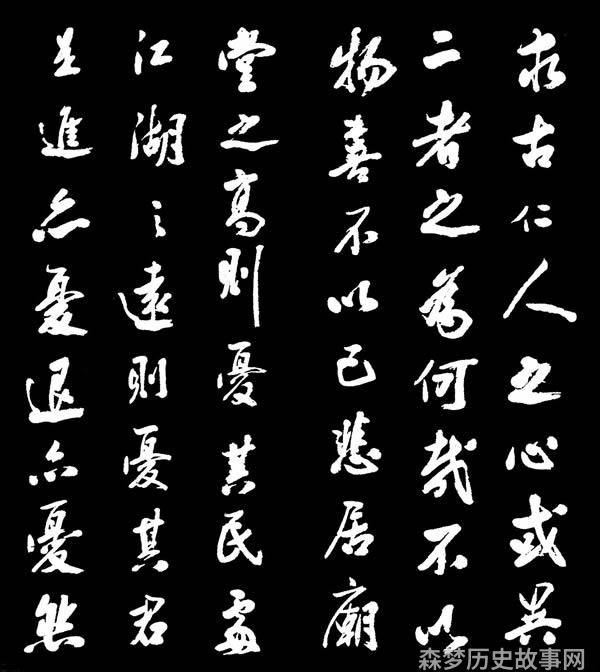 求古仁人之心或異
二者之為何哉不以
物喜不以己悲居廟
堂之高則憂其民處
江湖之遠則憂其君
是進亦憂退亦憂然
森梦历史故事网